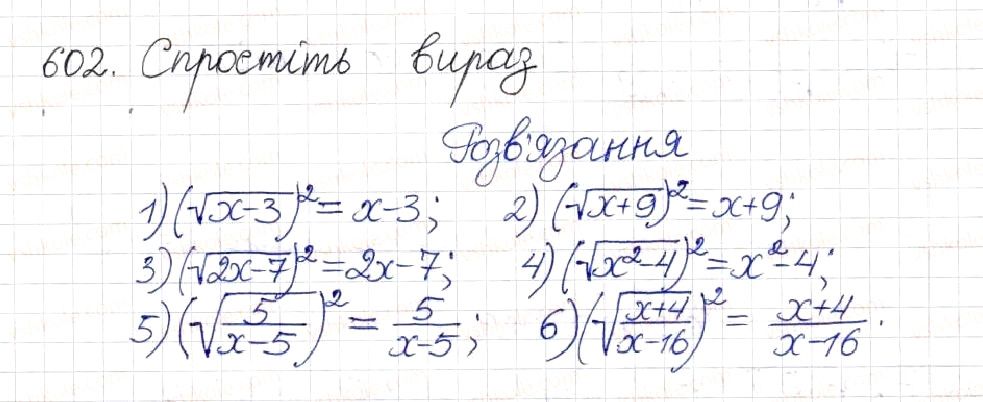 602. Спростіть вираз
Розв'язання
1) (√(x-3))² = x-3; 2) (√(x+9))² = x+9;
3) (√(2x-7))² = 2x-7; 4) (√(x²-4))² = x²-4;
5) (√(5/(x-5)))² = 5/(x-5); 6) (√((x+4)/(x-16)))² = (x+4)/(x-16).